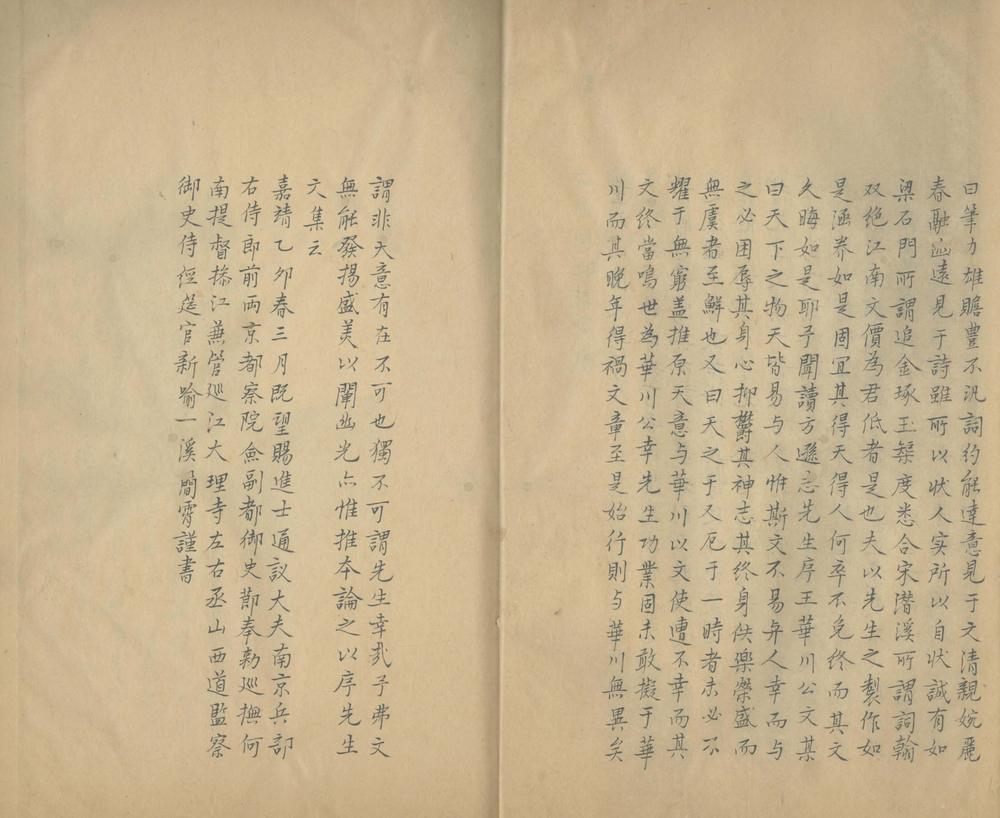 曰筆力雄贍豊不汎詞約能達意見于文清親婉麗
春融逈遠見于詩雖所以狀人实所以自狀誠有如
梁石門所謂追金琢玉榘度悉合宋潛溪所謂詞翰
双绝江南文價為君低者是也夫以先生之製作如
是涵养如是固宜其得天得人何卒不免终而其文
久晦如是耶予聞讀方遜志先生序王華川公文某
曰天下之物天皆易与人惟斯文不易与人幸而与
之必困辱其身心抑欝其神志其终身佚樂榮盛而
無虞者至鮮也又曰天之于人厄于一時者未必不
耀于無窮盖推原天意与華川以文使遭不幸而其
文终當鳴世為華川公幸先生功業固未敢擬于華
川而其晚年得禍文章至是始行則与華川無異矣
謂非天意有在不可也獨不可謂先生幸㢤予弗文
無能發揚盛美以闡幽光亦惟推本論之以序先生
文集云
嘉靖乙夘春三月既望賜進士通議大夫南京兵部
右侍郎前两京都察院僉副都御史莭奉勅巡撫何
南提督操江兼管巡江大理寺左右丞山西道監察
御史侍經筵官新喻一溪簡霄謹書